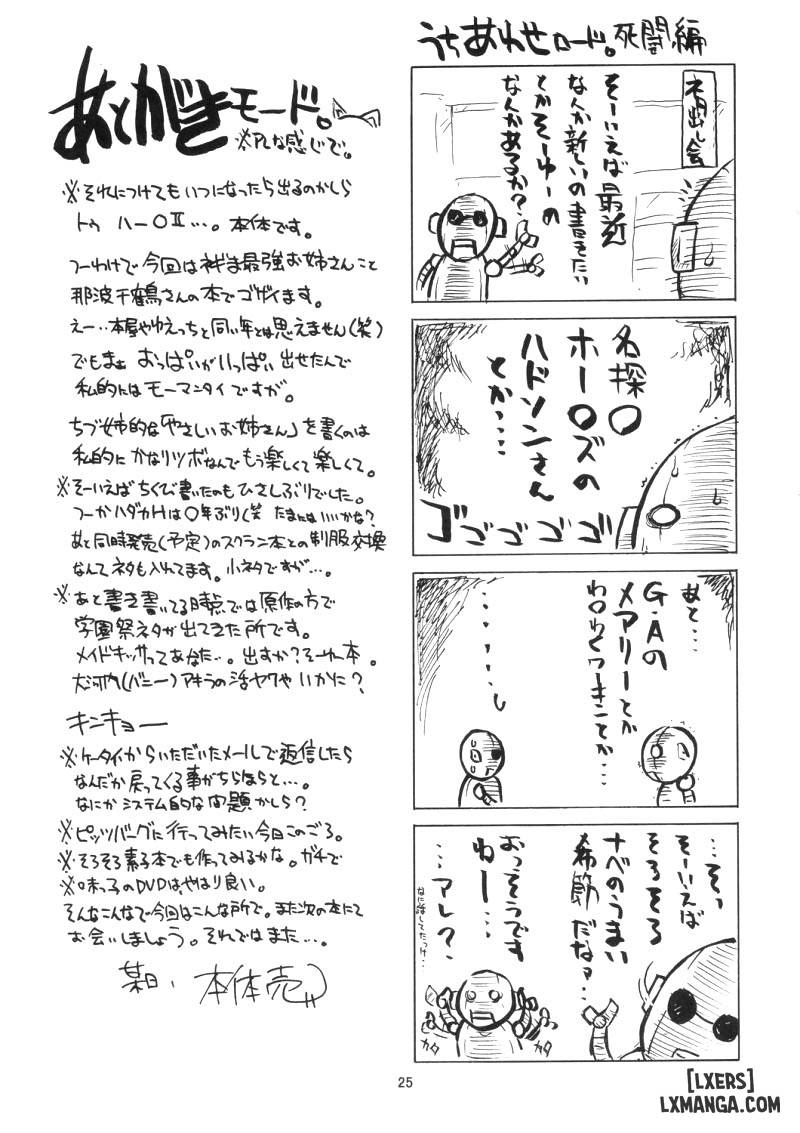 あとがきモード。
※PLな感じで。
※それにつけてもいつになったら出るのかしら
トゥ ハー〇Ⅱ…。本体です。
つーわけで今回はネギま最強お姉さんこと
那波千鶴さんの本でゴザイます。
えー…本屋やゆえっちと同い年とは思えません(笑)
でもまぁ おっぱいがいっぱい出せたんで
私的にはモーマンタイですが。
ちづ姉的な「やさしいお姉さん」を書くのは
私的にかなりツボなんでもう楽しくて楽しくて。
※そーいえばちくび書いたのもひさしぶりでした。
つーかハダカHは〇年ぶり(笑 たまにはいいかな?
あと同時発売(予定)のスクラン本との制服交換
なんてネタも入れてます。小ネタですが…。
※あと書き書いてる時点では原作の方で
学園祭ネタが出てきた所です。
メイドキッサってあなた…。出すか?そーゆー本。
大河内(バニー)アキラの活ヤクやいかに?
キンキョー
※ケータイからいただいたメールで返信したら
なんだか戻ってくる事がちらほらと…。
なにかシステム的な問題かしら?
※ピッツバーグに行ってみたい今日このごろ。
※そろそろ素子本でも作ってみるかな。ガチで
※味っ子のDVDはやはり良い。
そんなこんなで今回はこんな所で。また次の本にて
お会いしましょう。それではまた…。
某日、本体売
うちあわせロード。死闘編
ネタ出し会
そーいえば最近
なんか新しいの書きたい
とかそーゆーの
なんかあるか?
名探〇
ホー〇ズの
ハドソンさん
とか…
ゴゴゴゴゴ
あと…
G・Aの
メアリーとか
わ〇わくワーキンとか…
………
…そっ
そーいえば
そろそろ
ナベのうまい
季節だなァ…
おっそうです
ねー…
…アレ?
なに話してたっけ…
カタ
カタ
25
[LXERS]
LXMANGA.COM